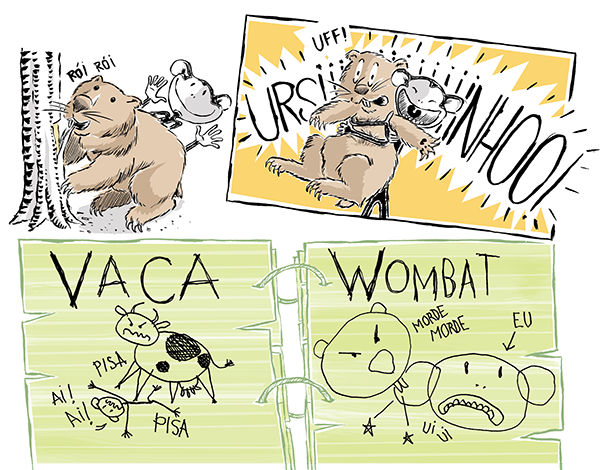 RÓI RÓI
UFF!
URSIIIIIIINHOO!
VACA
PISA
Ai!
Ai!
PISA
WOMBAT
MORDE
MORDE
EU
Ui
Ui